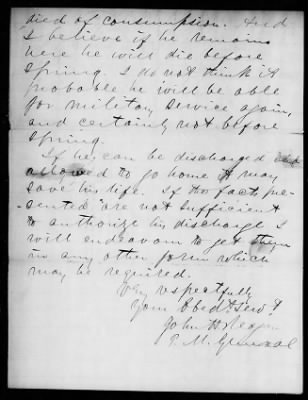 died of consumption. And
I believe if he remains
here he will die before
Spring. I do not think it
probable he will be able
for military service again,
and certainly not before
Spring.
If he can be discharged and
allowed to go home it may
save his life. If the facts pre-
sented are not sufficient
to authorize his discharge I
will endeavour to get them
in any other form which
may be required.
Very respectfully
Your Obedt. Servt.
John
P. M. General